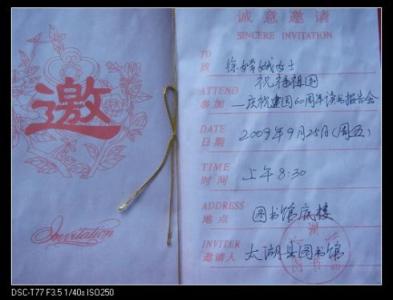 邀
Invitation
诚意邀请
SINCERE INVITATION
TO
致 徐嫦娥女士
祝福祖国
ATTEND
参加 —庆祝建国60周年读书报告会
DATE
日期 2009年9月25日(周五)
TIME
时间 上午8:30
ADDRESS
地点 图书馆底楼
INVITER
邀请人 太湖县图书馆
DSC-T77 F3.5 1/40s ISO250